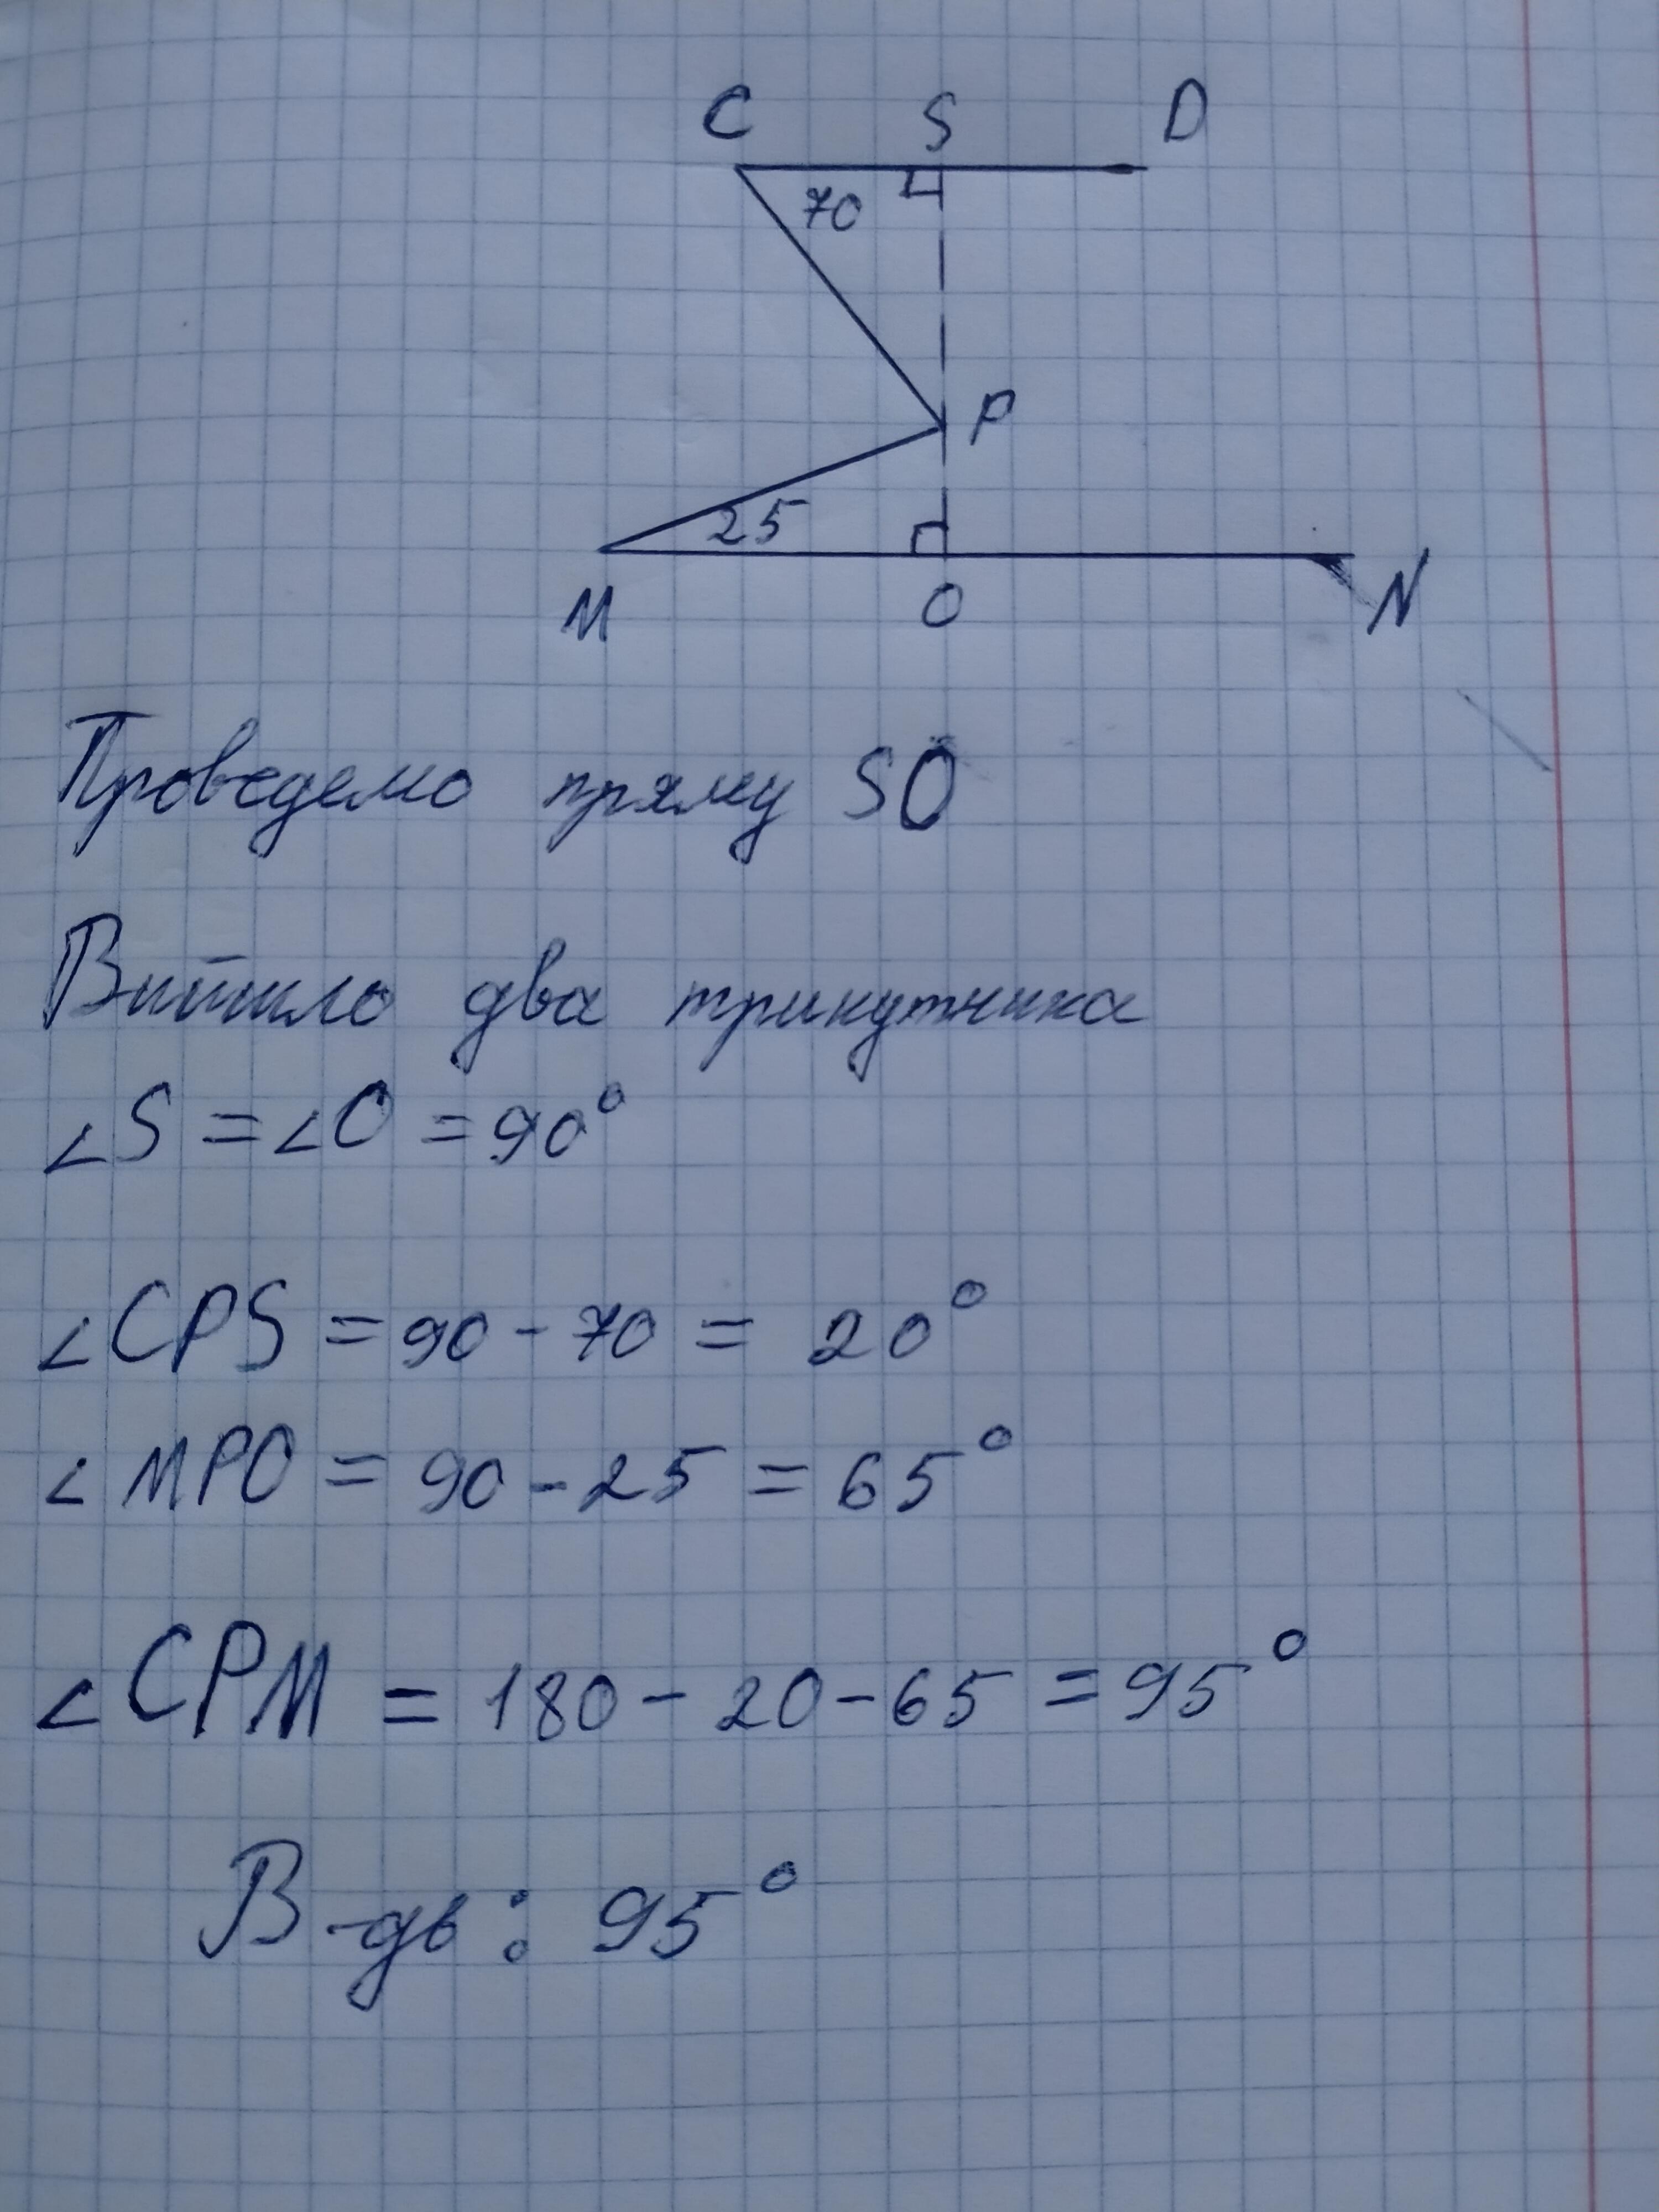 C S D
70
P
25
M O N
Проведемо пряму SO
Вийшло два трикутника
∠S = ∠O = 90°
∠CPS = 90 - 70 = 20°
∠MPO = 90 - 25 = 65°
∠CPM = 180 - 20 - 65 = 95°
В-дь: 95°